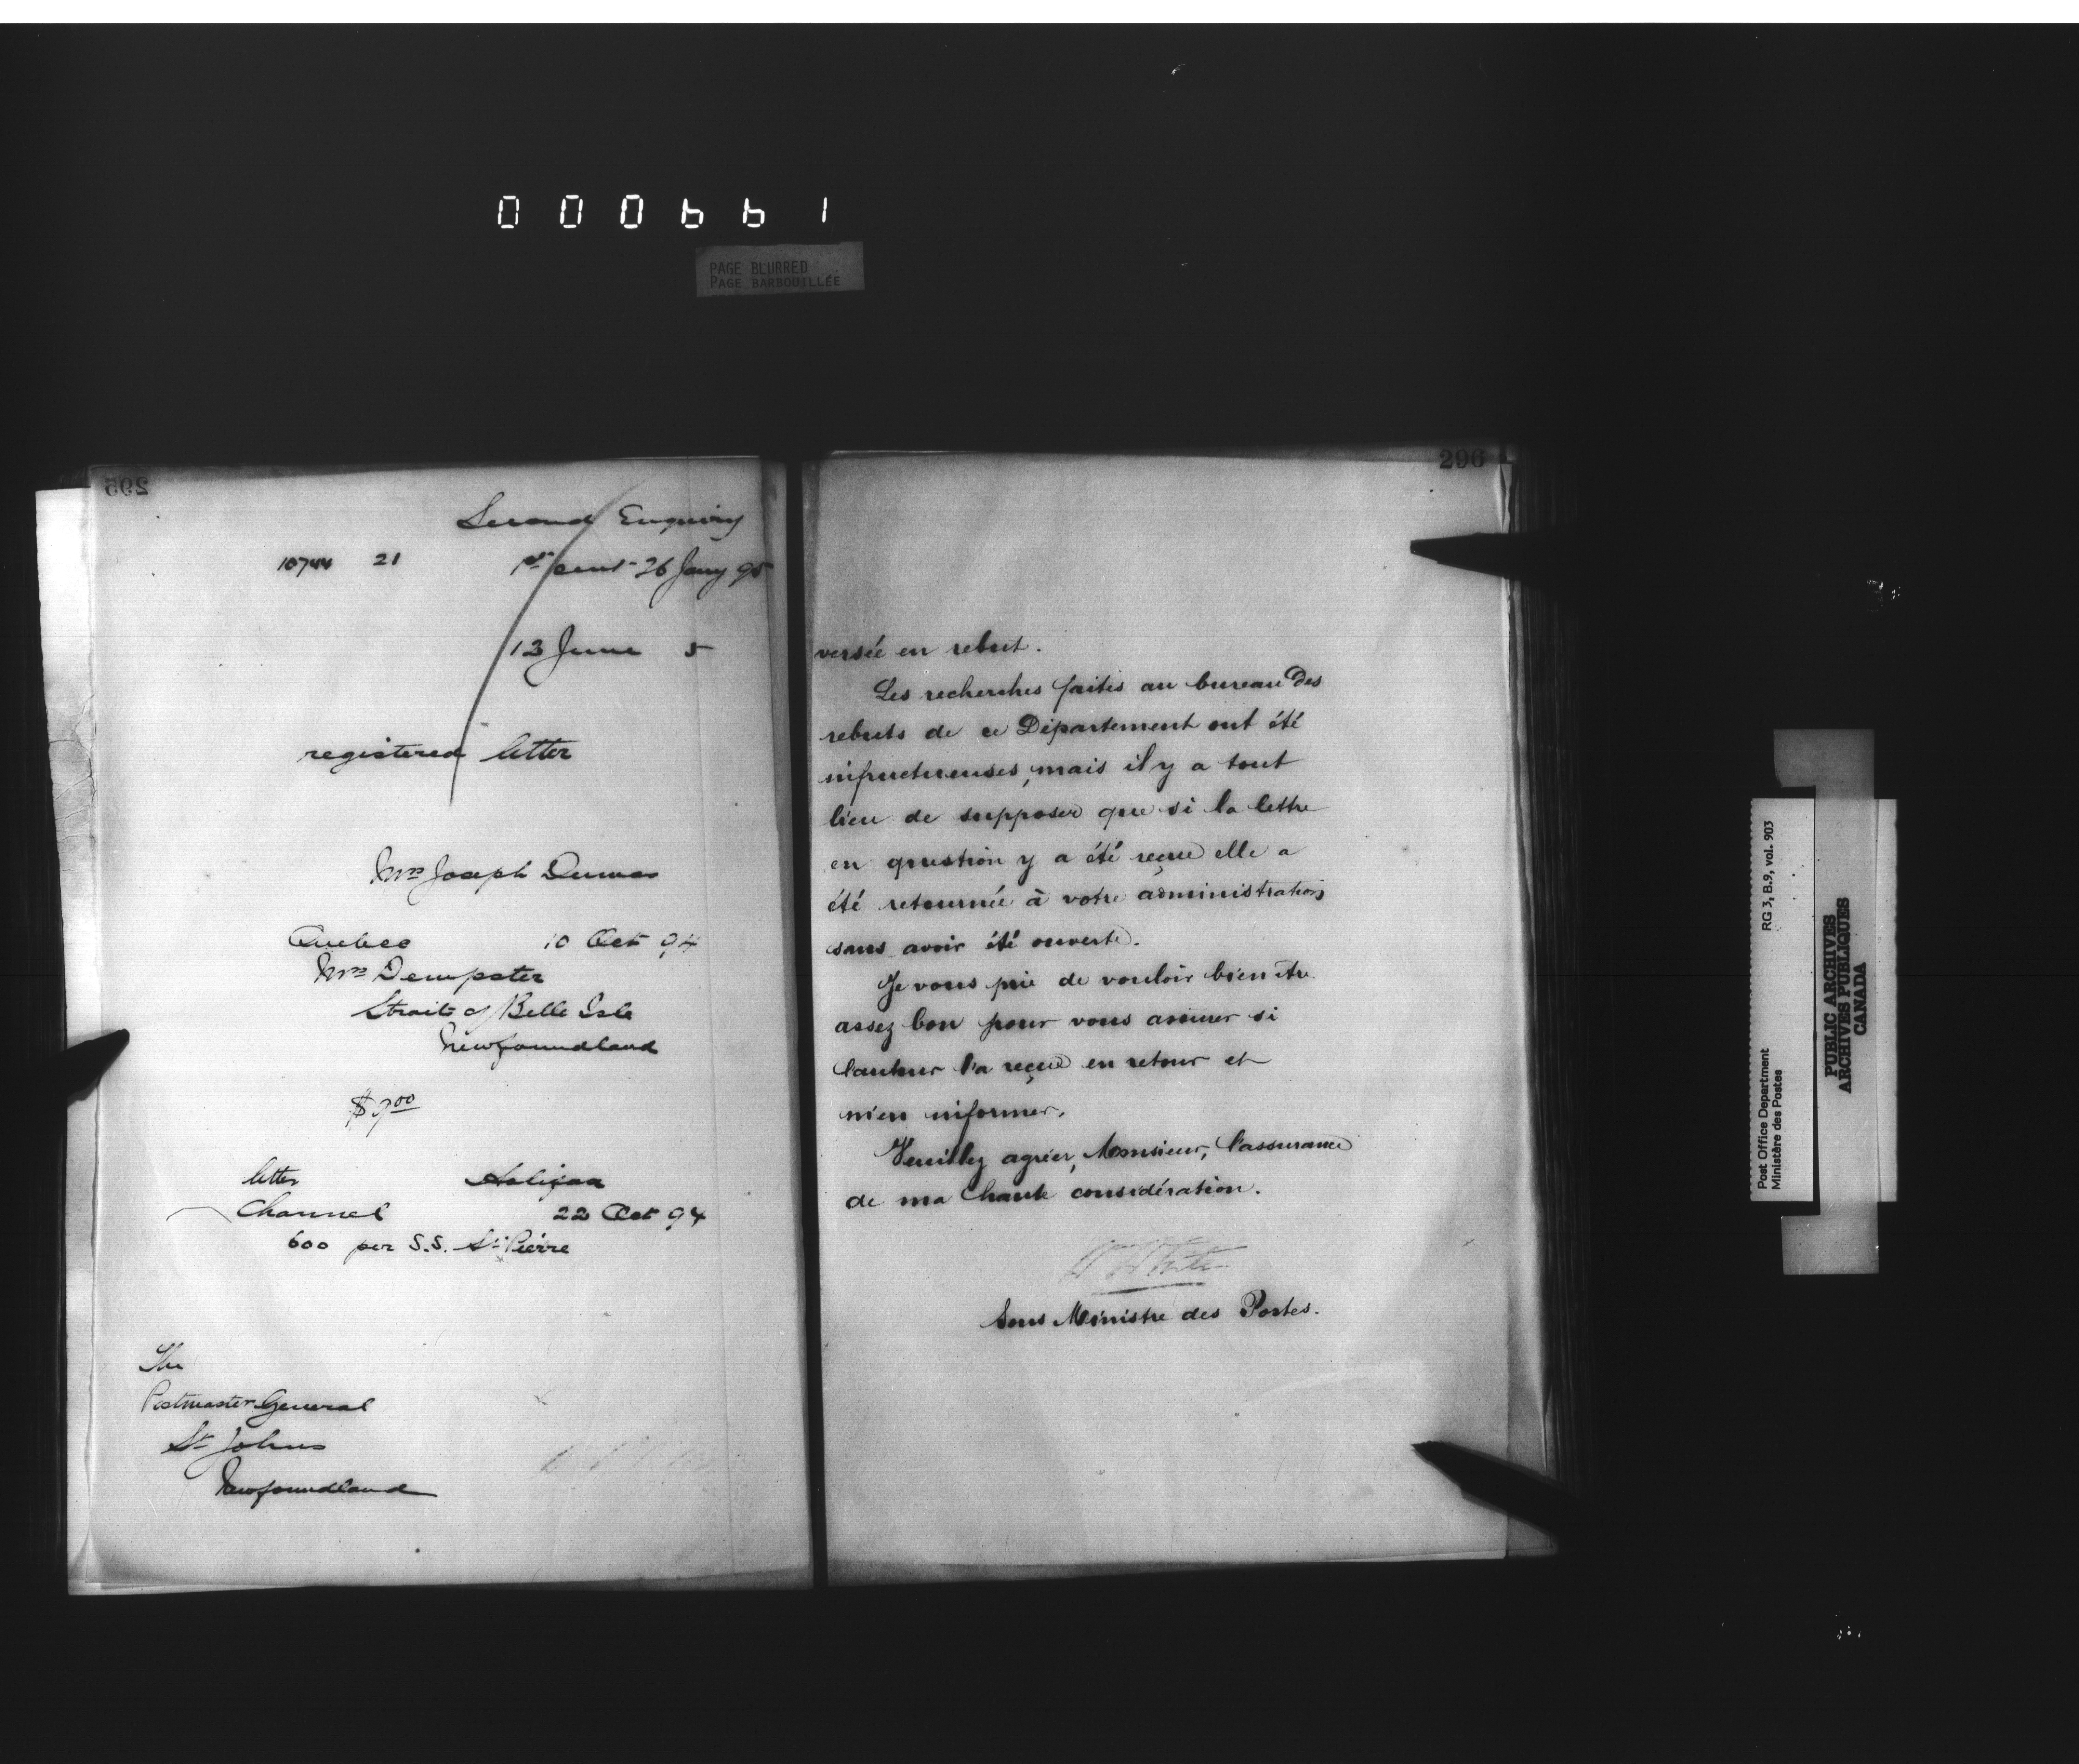 000661
PAGE BLURRED
PAGE BARBOUILLÉE
295
Second Enquiry
10744 21 1st sent 26 Jany 95
13 June 5
registered letter
Mrs Joseph Dumas
Quebec 10 Oct 94
Mrs Dempster
Straits of Belle Isle
Newfoundland
$9.00
letter Halifax
Channel 22 Oct 94
600 per S.S. St. Pierre
The
Postmaster General
St Johns
Newfoundland
296
versée en rebut.
Les recherches faites au bureau des
rebuts de ce Département ont été
infructueuses, mais il y a tout
lieu de supposer que si la lettre
en question y a été reçue elle a
été retournée à votre administration
sans avoir été ouverte.
Je vous prie de vouloir bien être
assez bon pour vous assurer si
l'auteur l'a reçue en retour et
m'en informer.
Veuillez agréer, Monsieur, l'assurance
de ma haute considération.
W White
Sous Ministre des Postes.
Post Office Department RG 3, B.9, vol. 903
Ministère des Postes
PUBLIC ARCHIVES
ARCHIVES PUBLIQUES
CANADA